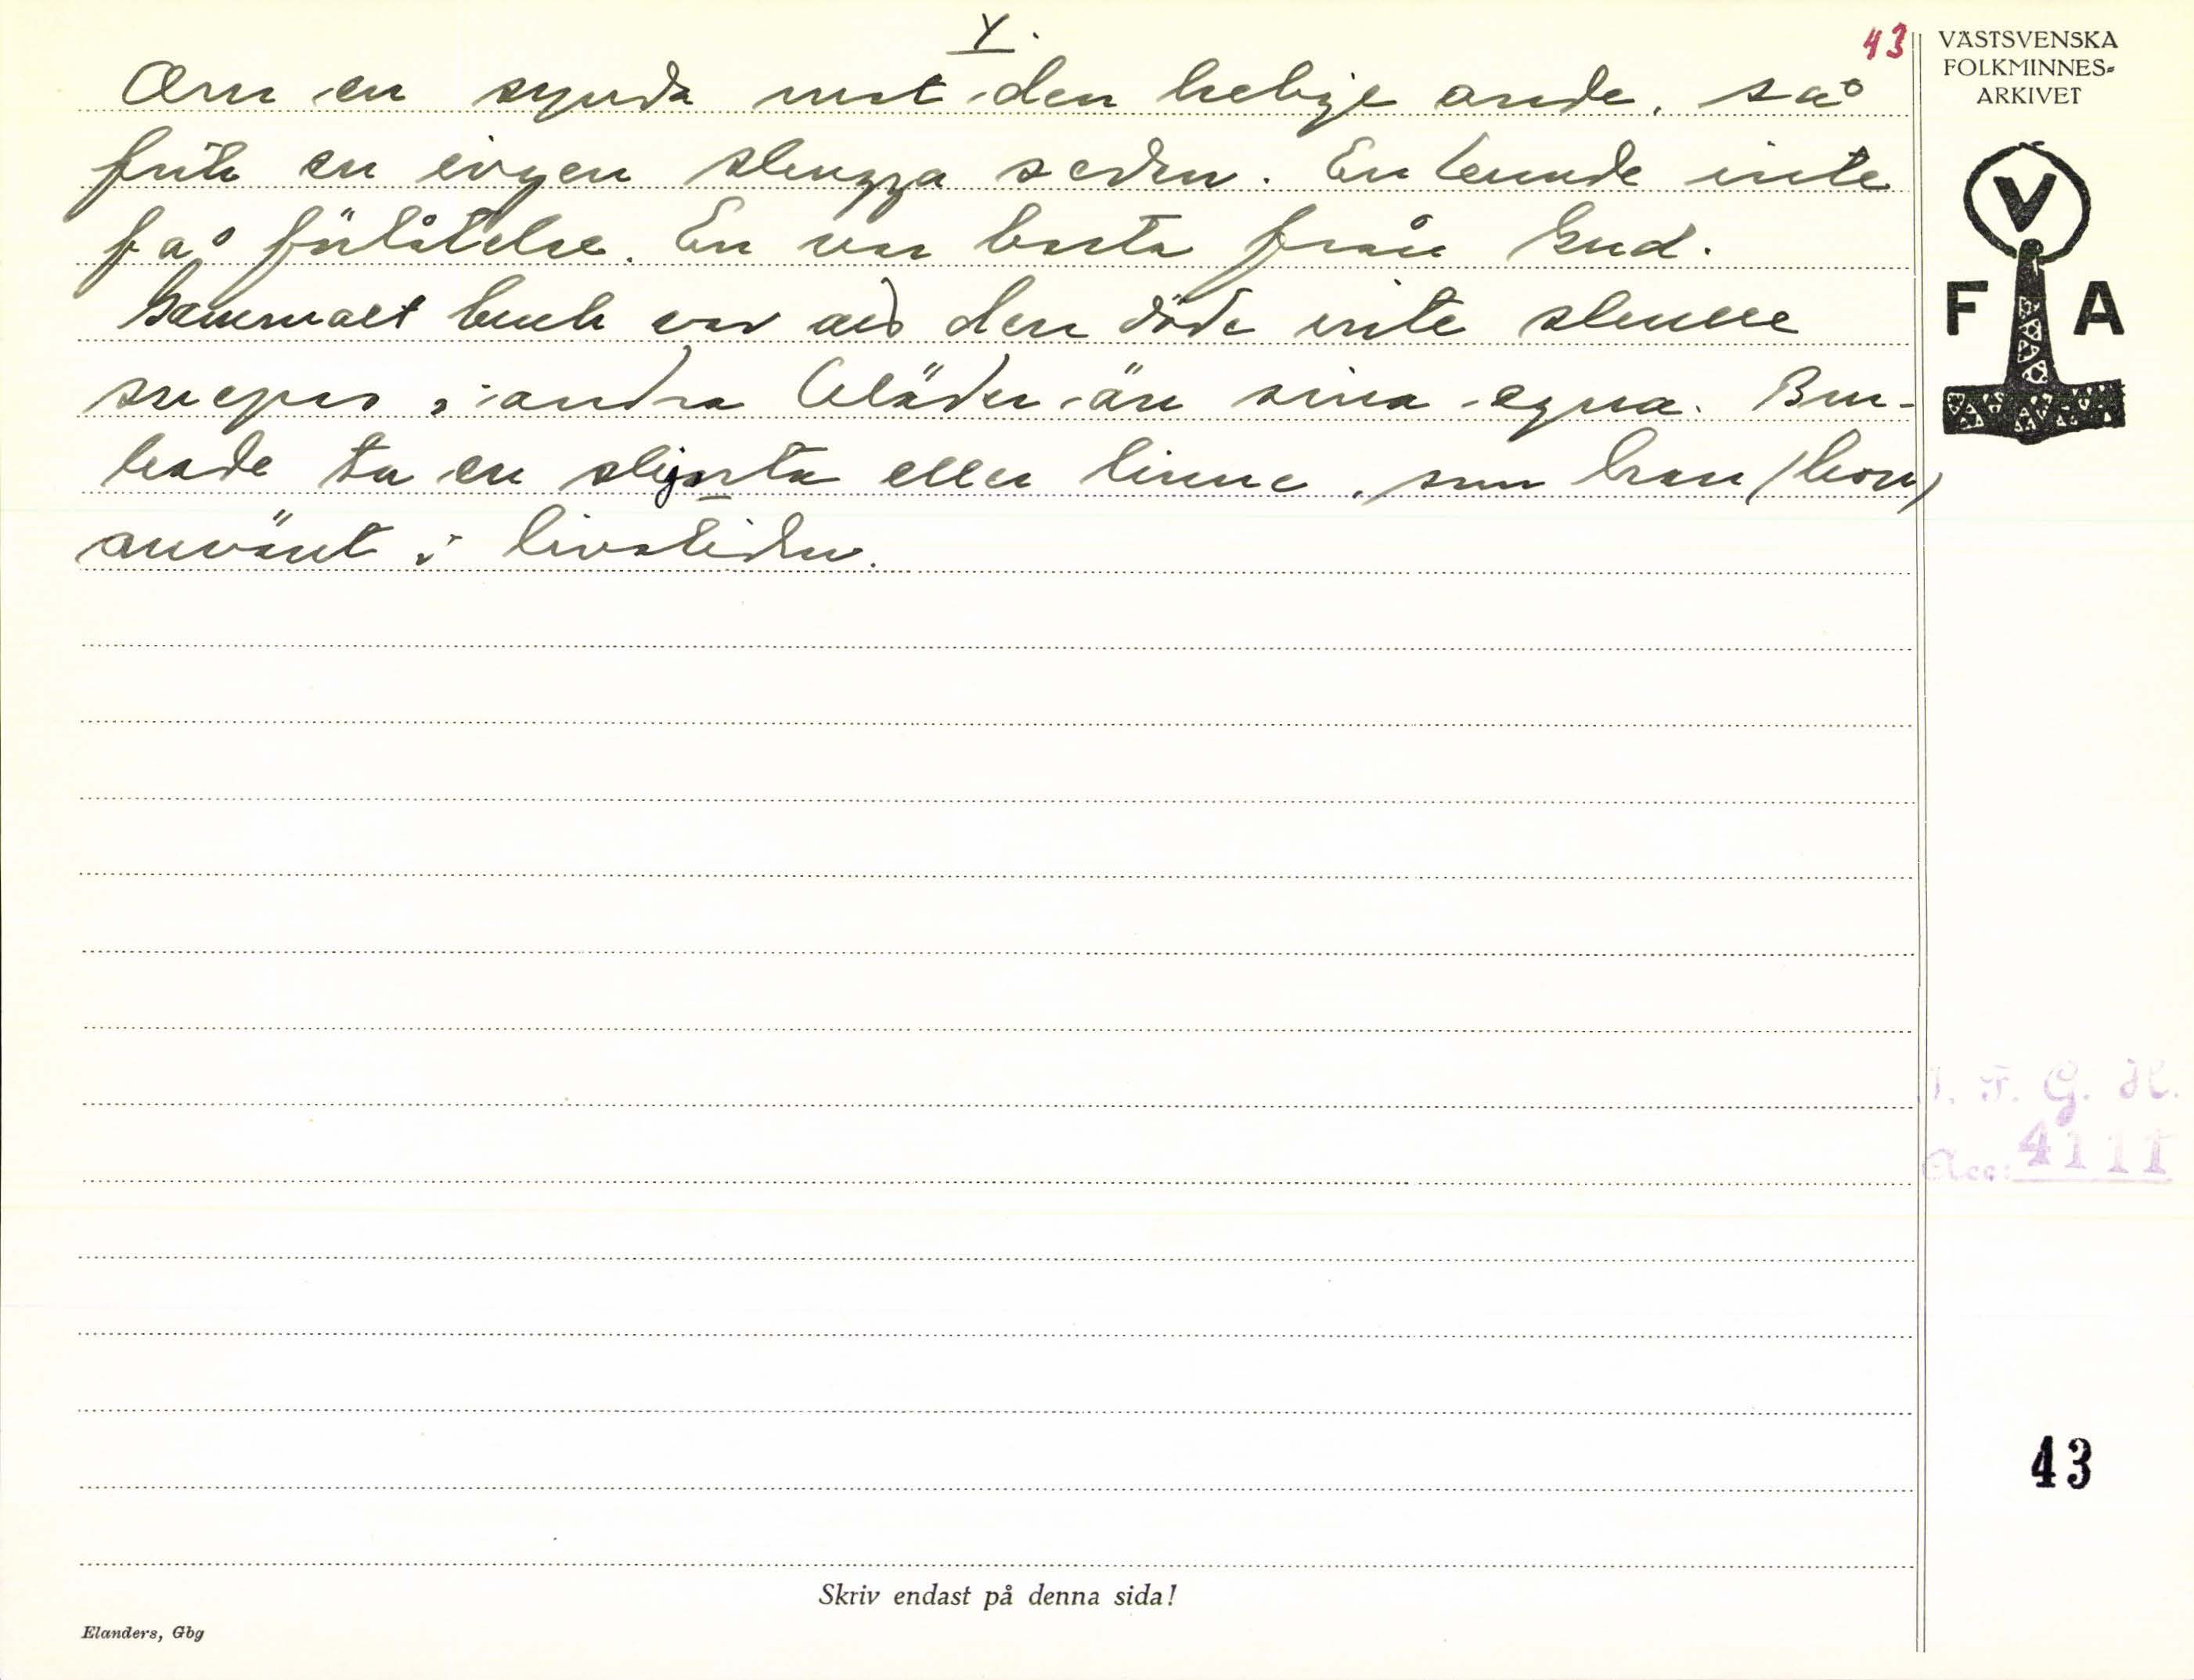 Y.
43
VÄSTSVENSKA
FOLKMINNES-
ARKIVET
V
F A
Om en synda mot den helige ande, så
fick en ingen skugga sedan. En kunde inte
få förlåtelse. En var borta från Gud.
Gammalt bruk var att den döde inte skulle
svepas i andra kläder än sina egna. Bru-
kade ta en skjorta eller linne, som han (hon)
använt i livstiden.
I. F. G. H.
Acc: 4111
43
Skriv endast på denna sida!
Elanders, Gbg